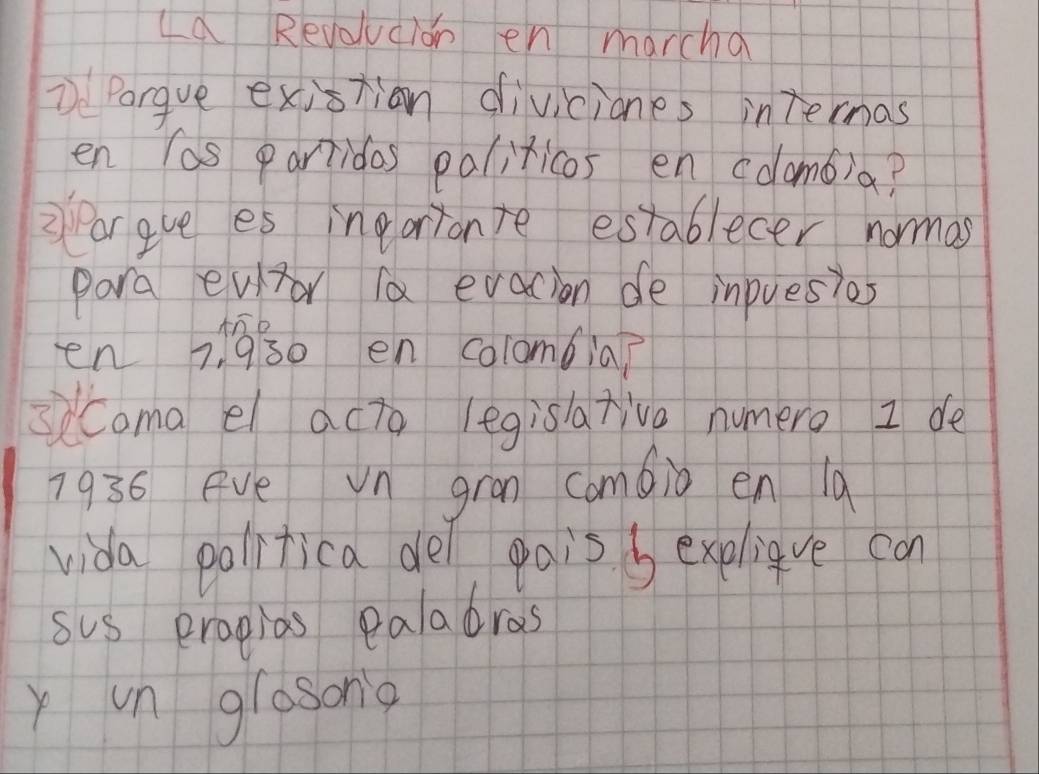 La Revolución en marcha
1)¿Porque existian diviciones internas
en los partidos politicos en colombia?
2)¿Porque es inportante establecer normas
para evitar la evacion de inpuestos
año
en 1.930 en colombia?
3)¿Como el acto legislativo numero 1 de
1936 fue un gran cambio en la
vida politica del pais. explique con
sus propias palabras
y un glosorio